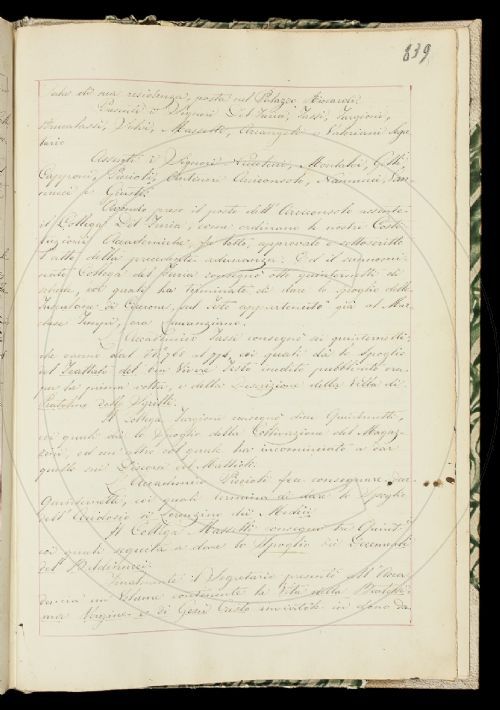 839
sala di sua residenza, posta nel Palazzo Riccardi.
Presenti i Signori Del Furia, Tassi, Targioni,
Brucalassi, Poltri, Massetti, Arcangeli e Valeriani Segre
tario
Assenti i Signori Fiacchi, Montalvi, Gelli
Capponi, Piccioli, Cantini Arciconsolo, Nannucci,
e Giusti.
Avendo preso il posto dell'Arciconsolo assente
il Collega Del Furia, come ordinano le nostre Costi-
tuzioni Accademiche, fu letto, approvato e sottoscritto
l'atto della precedente adunanza. Ed il summomi-
nato Collega del Furia consegnò otto quinternetti di
schede, coi quali ha terminato di dare lo spoglio delle
Tusculane di Cicerone, sul testo appartenuto già al Mar-
chese ora Laurenziano.
L'Accademico Tassi consegnò sei quinternetti,
che vanno dal 767 al 772, coi quali dà lo Spoglio
del Trattato del Ben Vivere Testo inedito pubblicato ora
per la prima volta, e della Descrizione della Villa di
Pratolino dello Sgrilli.
Il Collega Targioni consegnò dieci Quinternetti,
coi quali dà lo Spoglio della Coltivazione del Magaz-
zini, ed un altro col quale ha incominciato a dar
quello sui Discorsi del Mattioli.
L'Accademico Piccioli fece consegnare due
Quinternetti, coi quali termina di dare lo Spoglio
dell'Aridosio di Lorenzino dei Medici.
Il Collega Massetti consegnò tre Quint.
coi quali seguita a dare lo Spoglio dei Decennali
del Baldinucci.
Finalmente il Segretario presentò all'Acca-
demia un Volume contenente la Vita della Beatissi-
ma Vergine e di Gesù Cristo inviatole in dono da